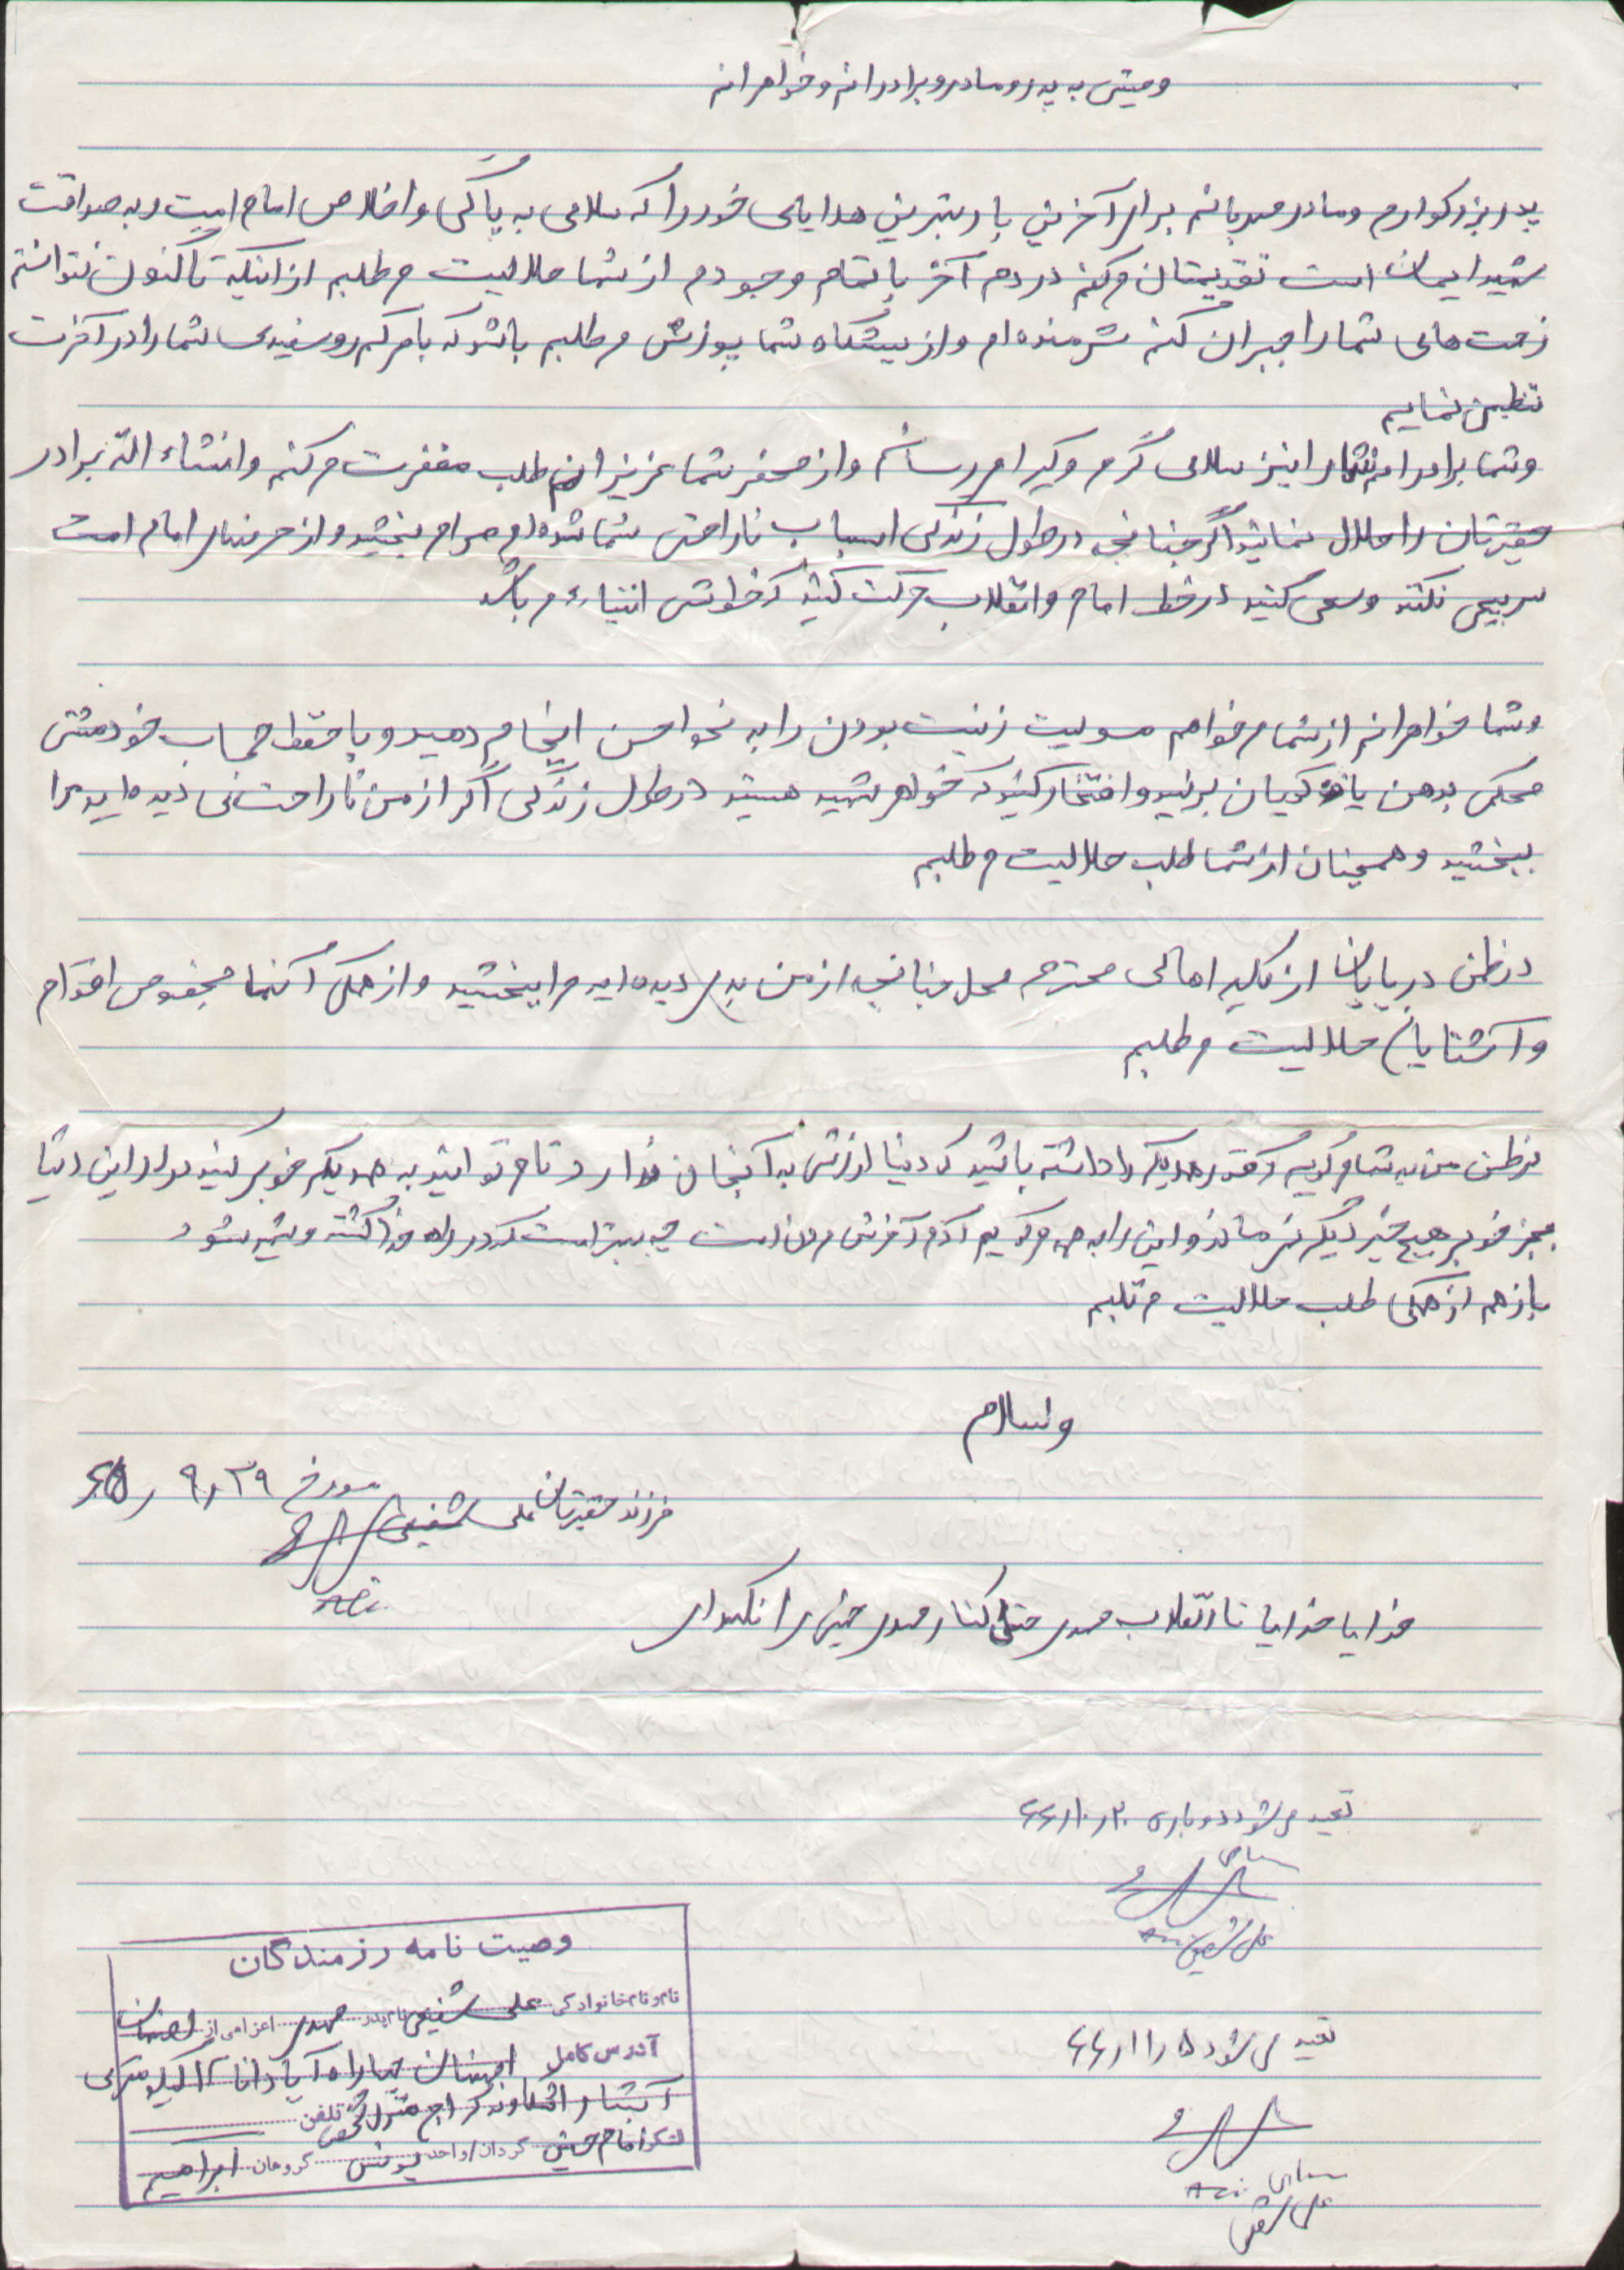 وصیتی به پدر و مادر و برادرانم و خواهرانم
پدر بزرگوارم و مادر مهربانم برای آخرین بار بهترین هدایای خود را که سلامی به پاکی و اخلاص امام امت و به صداقت
شهید ایمان است تقدیمتان میکنم در دم آخر با تمام وجودم از شما حلالیت می طلبم از اینکه تاکنون نتوانستم
زحمت های شما را جبران کنم شرمنده ام و از پیشگاه شما پوزش می طلبم باشد که با مرگم روسفیدی شما را در آخرت
تنظمین نمایم
و شما برادرانم شما را نیز سلامی گرم و گیرا می رسانم و از محضر شما عزیزان طلب مغفرت می کنم و انشاء الله برادر
حقیرتان را حلال نمائید اگر چنانچه در طول زندگی اسباب ناراحتی شما شده ام مرا می بخشید و از
سرپیچی نکنند و سعی کنید در خط امام و انقلاب حرکت کنید که خطوتش انبیاء می باشد
و شما خواهرانم از شما می خواهم مسولیت زینت بودن را به نحو احسن انجام دهید و با حفظ حجاب خود مشتی
محکمی بدهن یاوه گویان بزنید و افتخار کنید که خواهر شهید هستید در طول زندگی اگر از من ناراحتی دیده اید مرا
ببخشید و همچنان از شما طلب حلالیت می طلبم
در پایان از کلیه اهالی محترم محل چنانچه از من بدی دیده اید مرا ببخشید و از همگی آنها مخصوص اقوام
و آشنایان حلالیت می طلبم
من به شما می گویم قدر همدیگر را داشته باشید که دنیا ارزش به آنچنان ندارد تا می توانید به همدیگر خوبی کنید در این دنیا
بجز خوبی هیچ چیز دیگر نمی ماند و این را به همه می گویم آدم آخرش مردن است چه بهتر است که در راه خدا کشته و شهید شود
باز هم از همگی طلب حلالیت می تلبم
والسلام
مورخ ۲۹ ر ۹ ر ۶۵
فرزند حقیرتان علی شفیعی
Ali
خدایا خدایا تا انقلاب مهدی حتی کنار مهدی خمینی را نگهدار
تعید می شود دوباره ۲۰ ر ۱۰ ر ۶۶
علی شفیعی Ali
تعید می شود ۱۵ ر ۱۱ ر ۶۶
Ali
علی شفیعی
وصیت نامه رزمندگان
نام و نام خانوادگی علی شفیعی نام پدر مهدی اعزامی از اصفهان
آدرس کامل اصفهان چهار راه آپادانا
منزل شخصی تلفن
لشکر امام حسین گردان/واحد یونس گروهان ابراهیم